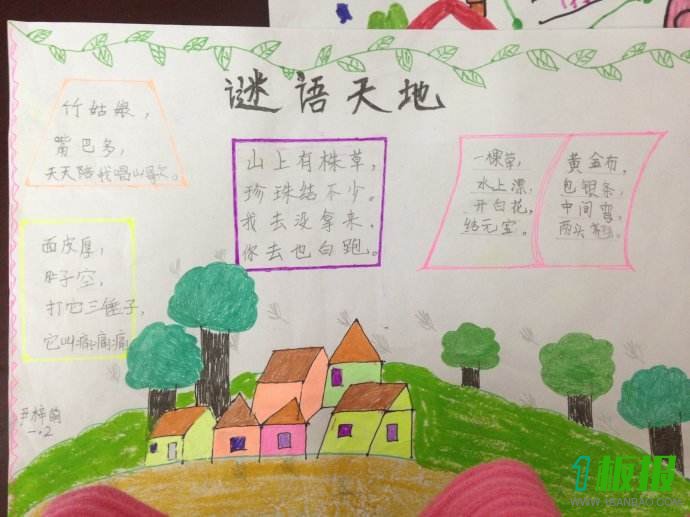 谜语天地
竹姑娘，
嘴巴多，
天天陪我唱山歌。
山上有株草，
珍珠结不少。
我去没拿来，
你去也白跑。
一棵草，
水上漂，
开白花，
结元宝。
黄金布，
包银条，
中间弯，
两头翘。
面皮厚，
肚子空，
打它三锤子，
它叫痛痛痛
一.2
1板报
WWW.1BANBAO.COM